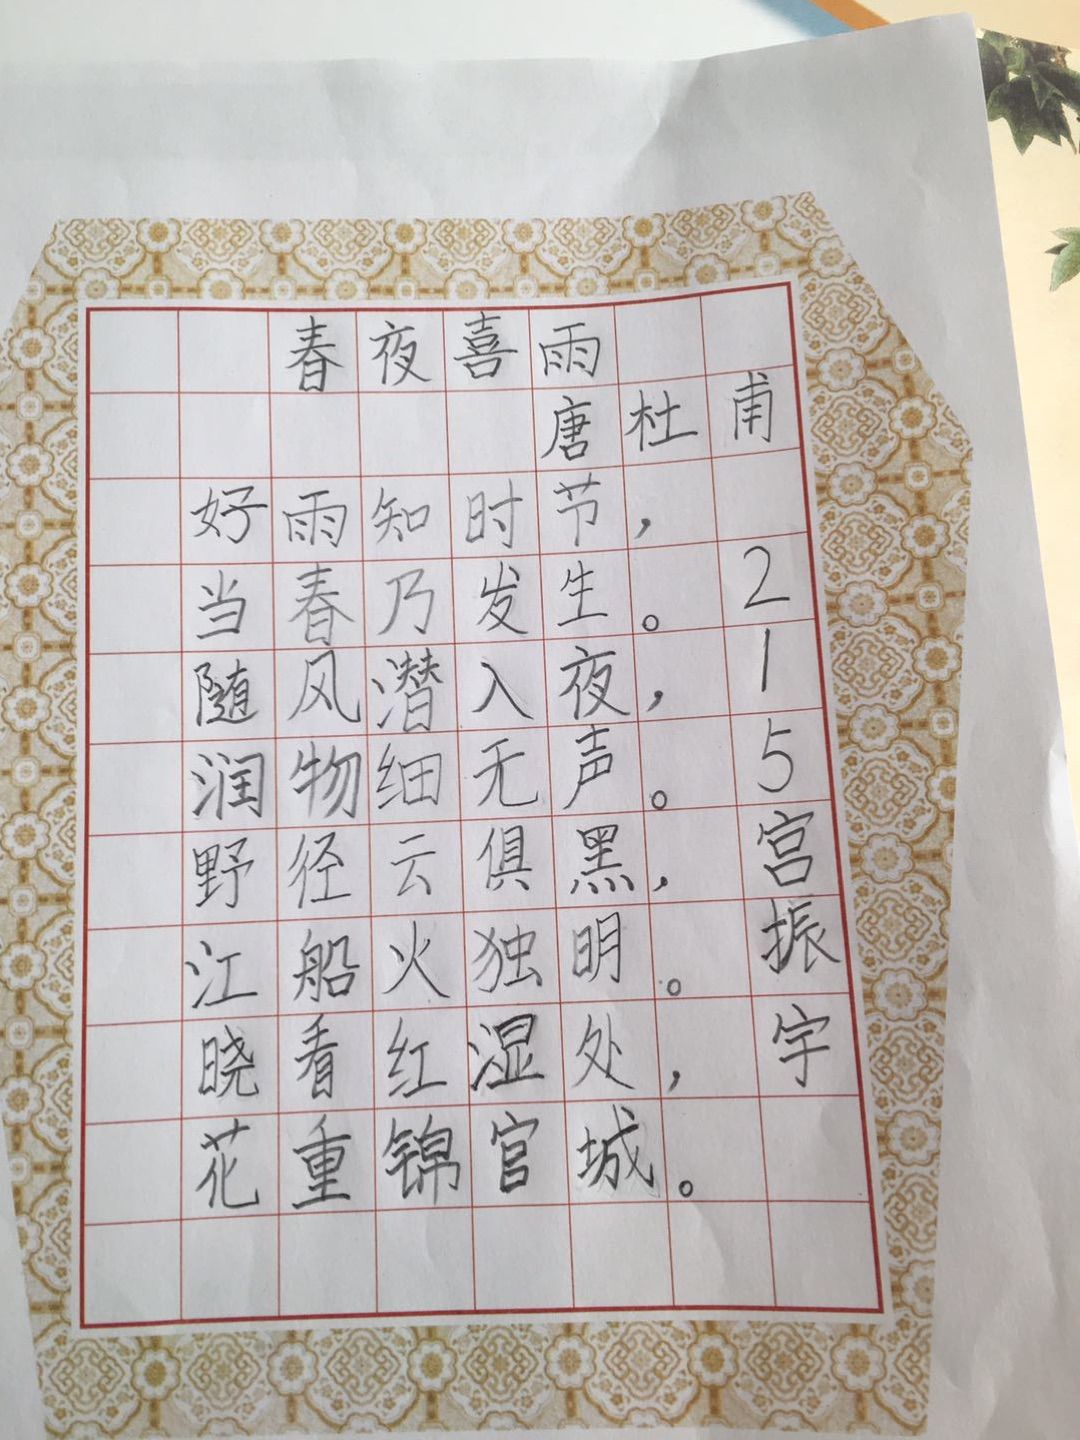 春夜喜雨
唐杜甫
好雨知时节，
当春乃发生。
随风潜入夜，
润物细无声。
野径云俱黑，
江船火独明。
晓看红湿处，
花重锦官城。
215宫振宇